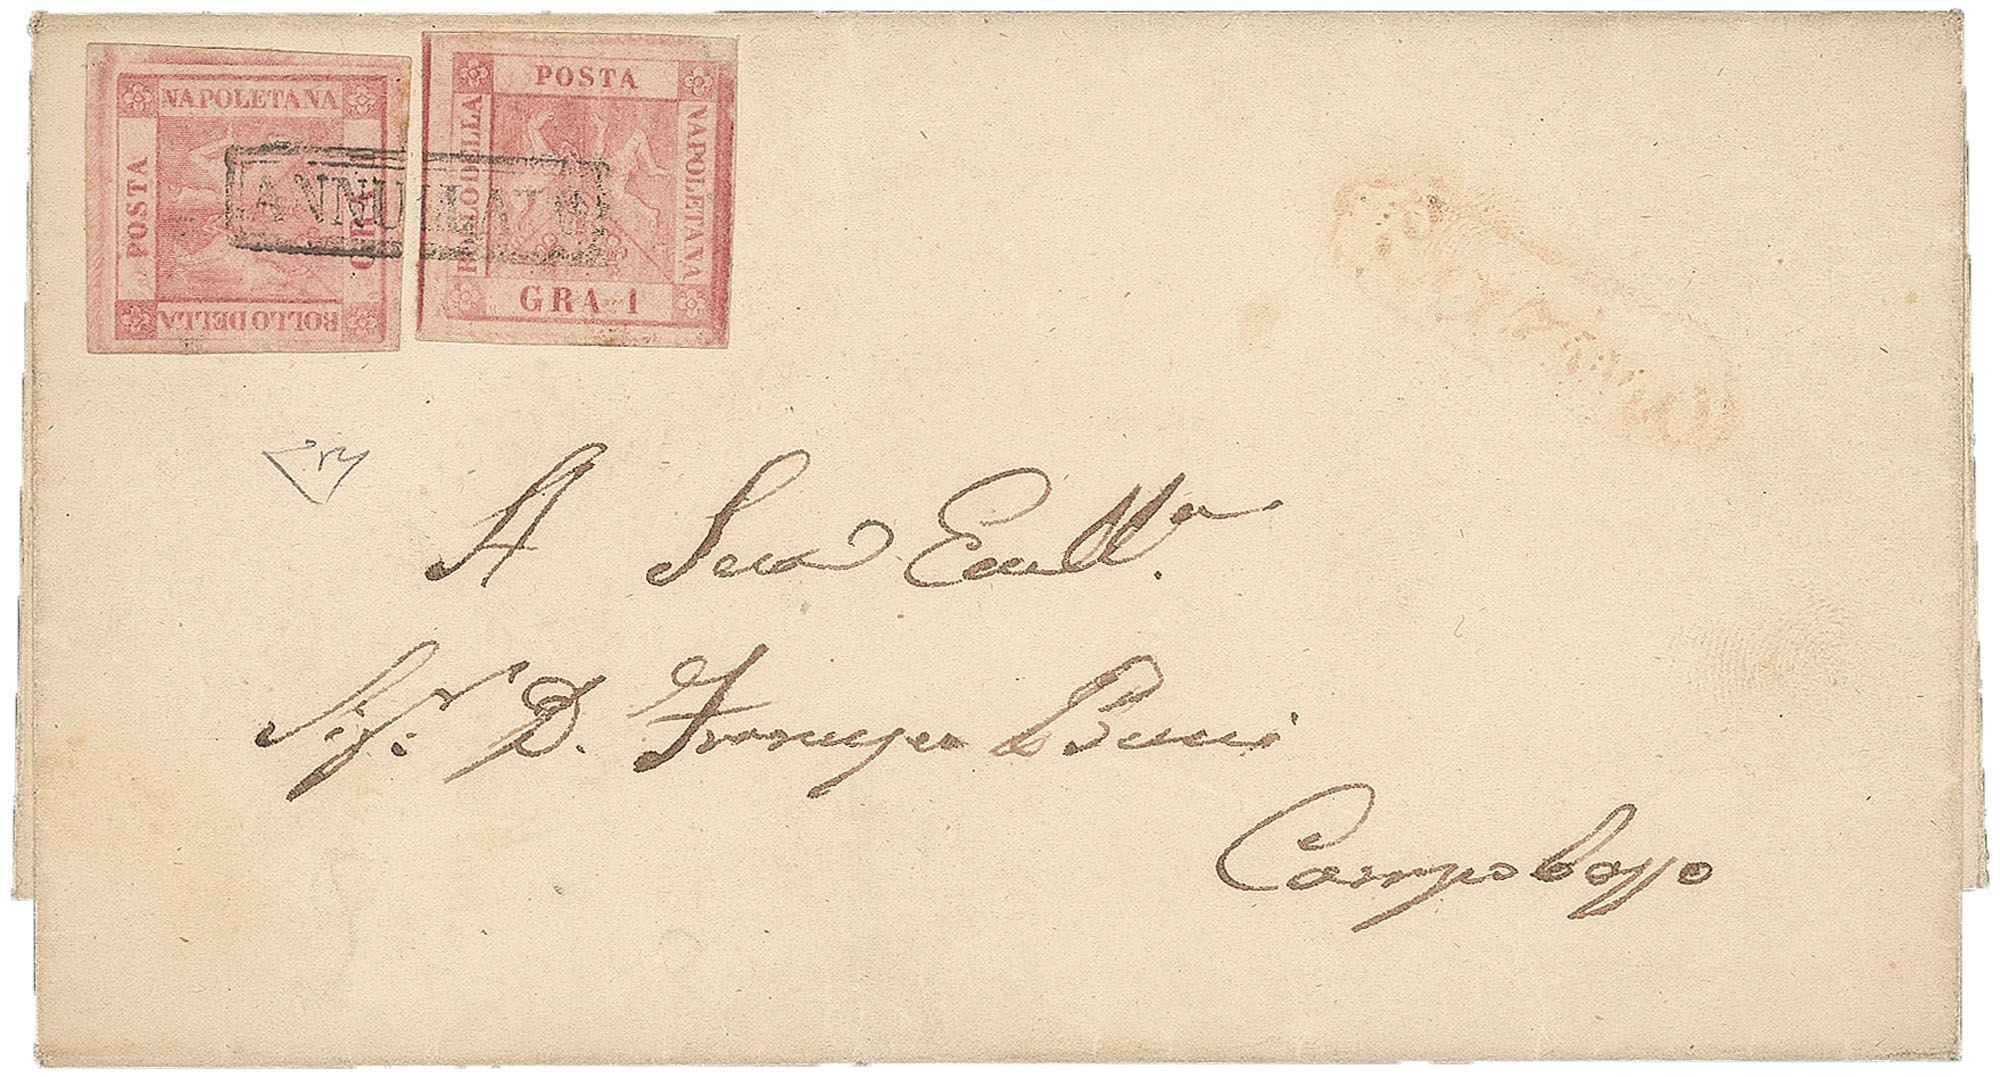 NAPOLETANA
POSTA
GRA 1
BOLLO DELLA
POSTA
BOLLO DELLA
NAPOLETANA
GRA 1
ANNULLATO
A Sua Ecc.ll.a
Sig.r D. Francesco Bucci
Campobasso